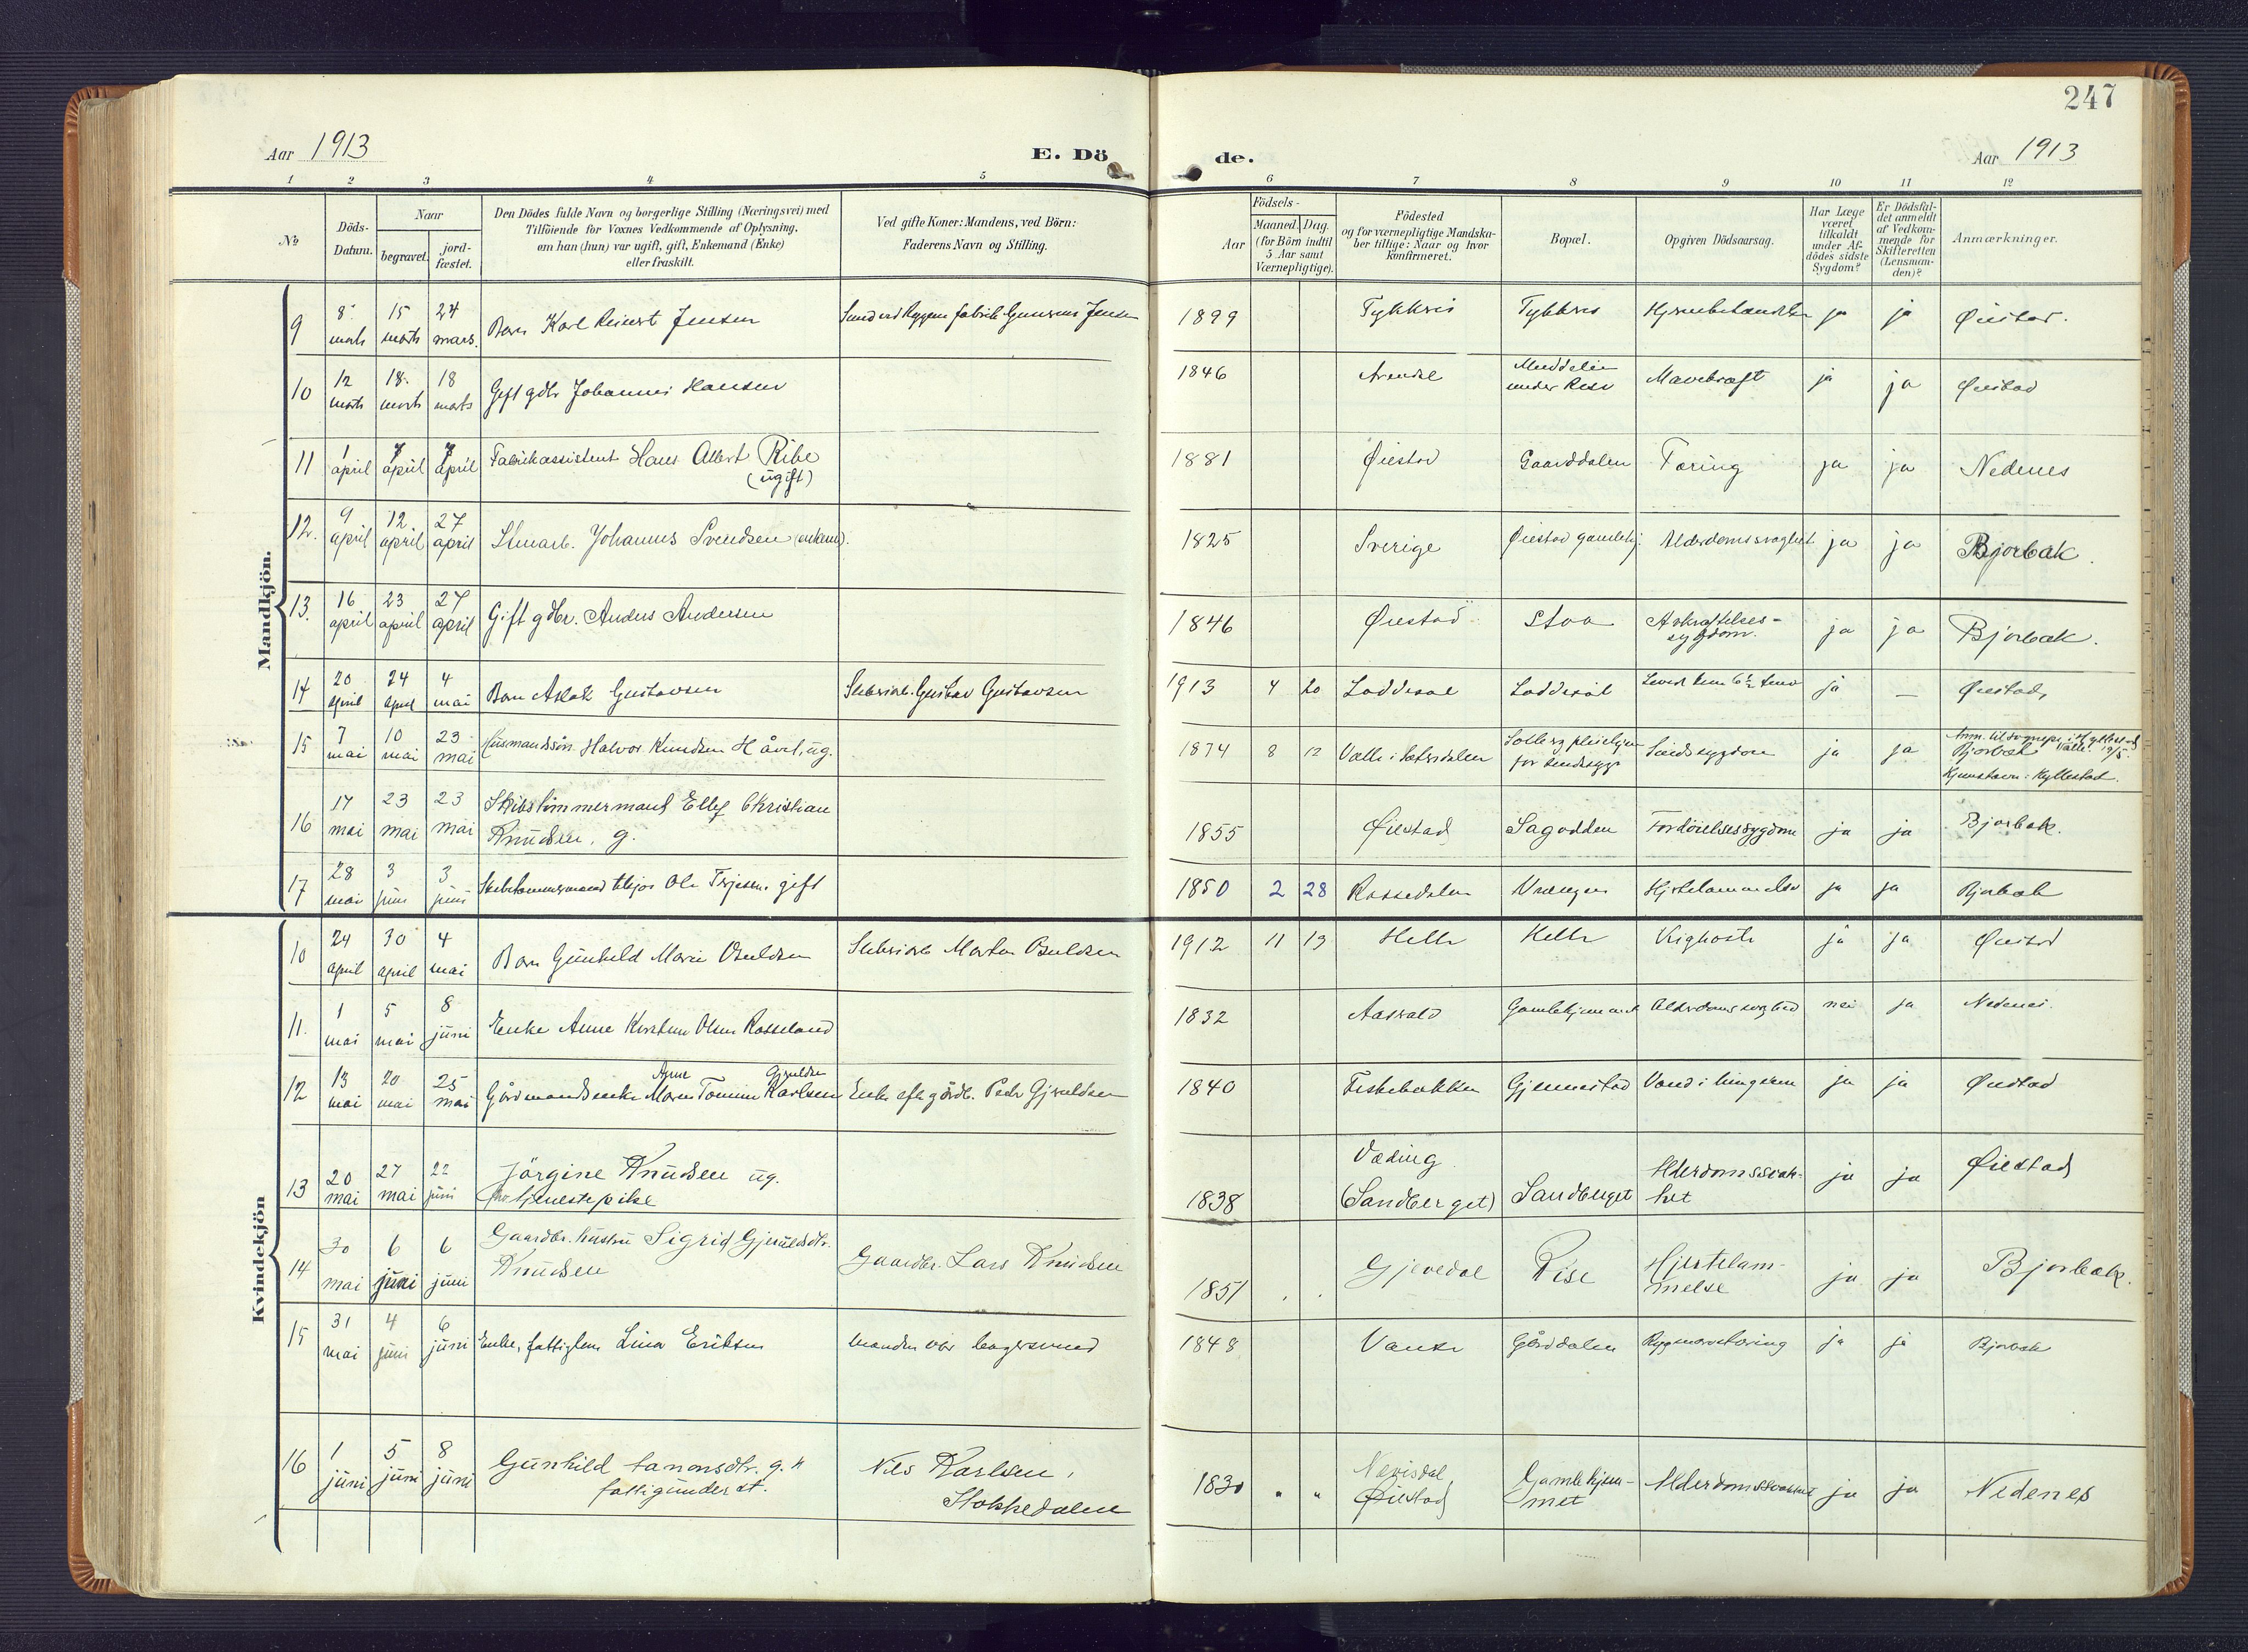 247
Aar 1913
E. Dö
de.
Aar 1913
1 2 3 4 5 6 7 8 9 10 11 12
No
Döds-
Datum.
Naar
begravet.
jord-
fæstet.
Den Dödes fulde Navn og borgerlige Stilling (Næringsvei) med
Tilföiende for Voxnes Vedkommende af Oplysning,
om han (hun) var ugift, gift, Enkemand (Enke)
eller fraskilt.
Ved gifte Koner: Mandens, ved Börn:
Faderens Navn og Stilling.
Födsels-
Aar
Maaned. Dag.
(for Börn indtil
5 Aar samt
Værnepligtige).
Födested
og for værnepligtige Mandska-
ber tillige: Naar og hvor
konfirmeret.
Bopæl.
Opgiven Dödsaarsag.
Har Læge
været
tilkaldt
under Af-
dödes sidste
Sygdom?
Er Dödsfal-
det anmeldt
af Vedkom-
mende for
Skifteretten
(Lensman-
den)?
Anmærkninger.
Mandkjön.
9 8 marts 15 marts 24 mars. Barn Karl Reinert Jensen 1899 Tykkris Tykkris ja ja Øiestad.
10 12 marts 18. marts 18 marts Gift gdbr Johannes Hansen 1846 Arendal under Rise Mavekræft ja ja Øiestad
11 1 april 7 april 7 april Fabrikassistent Hans Albert Ribe
(ugift) 1881 Øiestad Gaarddalen Tæring ja ja Nedenes
12. 9 april 12 april 27 april Stenarb. Johannes Svendsen (enkem). 1825 Sverige Øiestad gamlehj. Alderdomssvaghet ja ja Bjorbæk.
13. 16 april 23 april 27 april Gift gdbr. Anders Andersen 1846 Øiestad Stoa Avkræftelses-
sygdom. ja ja Bjorbæk.
14 20 april 24 april 4 mai Barn Aslak Gustavsen Gustav Gustavsen 1913 4 20 Løddesøl Løddesøl Levet kun 6½ time ja — Øiestad,
15 7 mai 10 mai 23 mai Husmandssøn Halvor Knudsen ug. 1874 8 12 Valle i Sætersdalen for sindssyge Sindssygdom ja ja Bjorbæk
16 17 mai 23 mai 23 mai Skibstimmermand Ellef Christian
Knudsen, g. 1855 Øiestad Sagodden Fordøielsessygdom ja ja Bjorbæk.
17 28 mai 3 juni 3 juni Ole Terjesen. gift 1850 2 28 Rossedalen Vrængen Hjertelammelse ja ja Bjorbæk
Kvindekjön
10 24 april 30 april 4 mai Barn Gunhild Marie Osuldsen Morten Osuldsen 1912 11 13 Helle Helle Kighoste ja ja Øiestad
11. 1 mai 5 mai 8 juni Enke Anne Kirstine Olsen Rosseland 1832 Aasvald Alderdomssvaghed nei ja Nedenes.
12 13 mai 20 mai 25 mai Gårdmandsenke Maren Tomine Karlsen Enke efter gårdb. Peder Gjeruldsen 1840 Fiskebækken Gjennestad Vand i lungerne ja ja Øiestad
13 20 mai 27 mai 22 juni Jörgine Knudsen ug.
tjenestepike 1838 Væding
(Sandberget) Sandberget Alderdomssvak-
het ja ja Øiestad
14 30 mai 6 juni 6 juni Gaardbr. hustru Sigrid Gjeruldsdtr.
Knudsen Gaardbr. Lars Knudsen 1851 Gjøvedal Rise Hjertelam-
melse ja ja Bjorbæk.
15 31 mai 4 juni 6 juni Enke, fattiglem Lina Eriksen manden var bagersvend 1848 Vanse Gårddalen Rygmarvstæring ja ja Bjorbæk
16 1 juni 5 juni 8 juni Gunhild Tanonsdtr. g. "
fattigunderst. Nils Karlsen,
Stokkedalen 1830 " " Nævisdal
Øiestad Gamlehjem-
met Alderdomssvakhet ja ja Nedenes